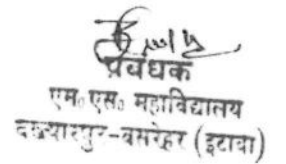 प्रबंधक
एम॰ एस॰ महाविद्यालय
दख्यारपुर-बसरेहर (इटावा)